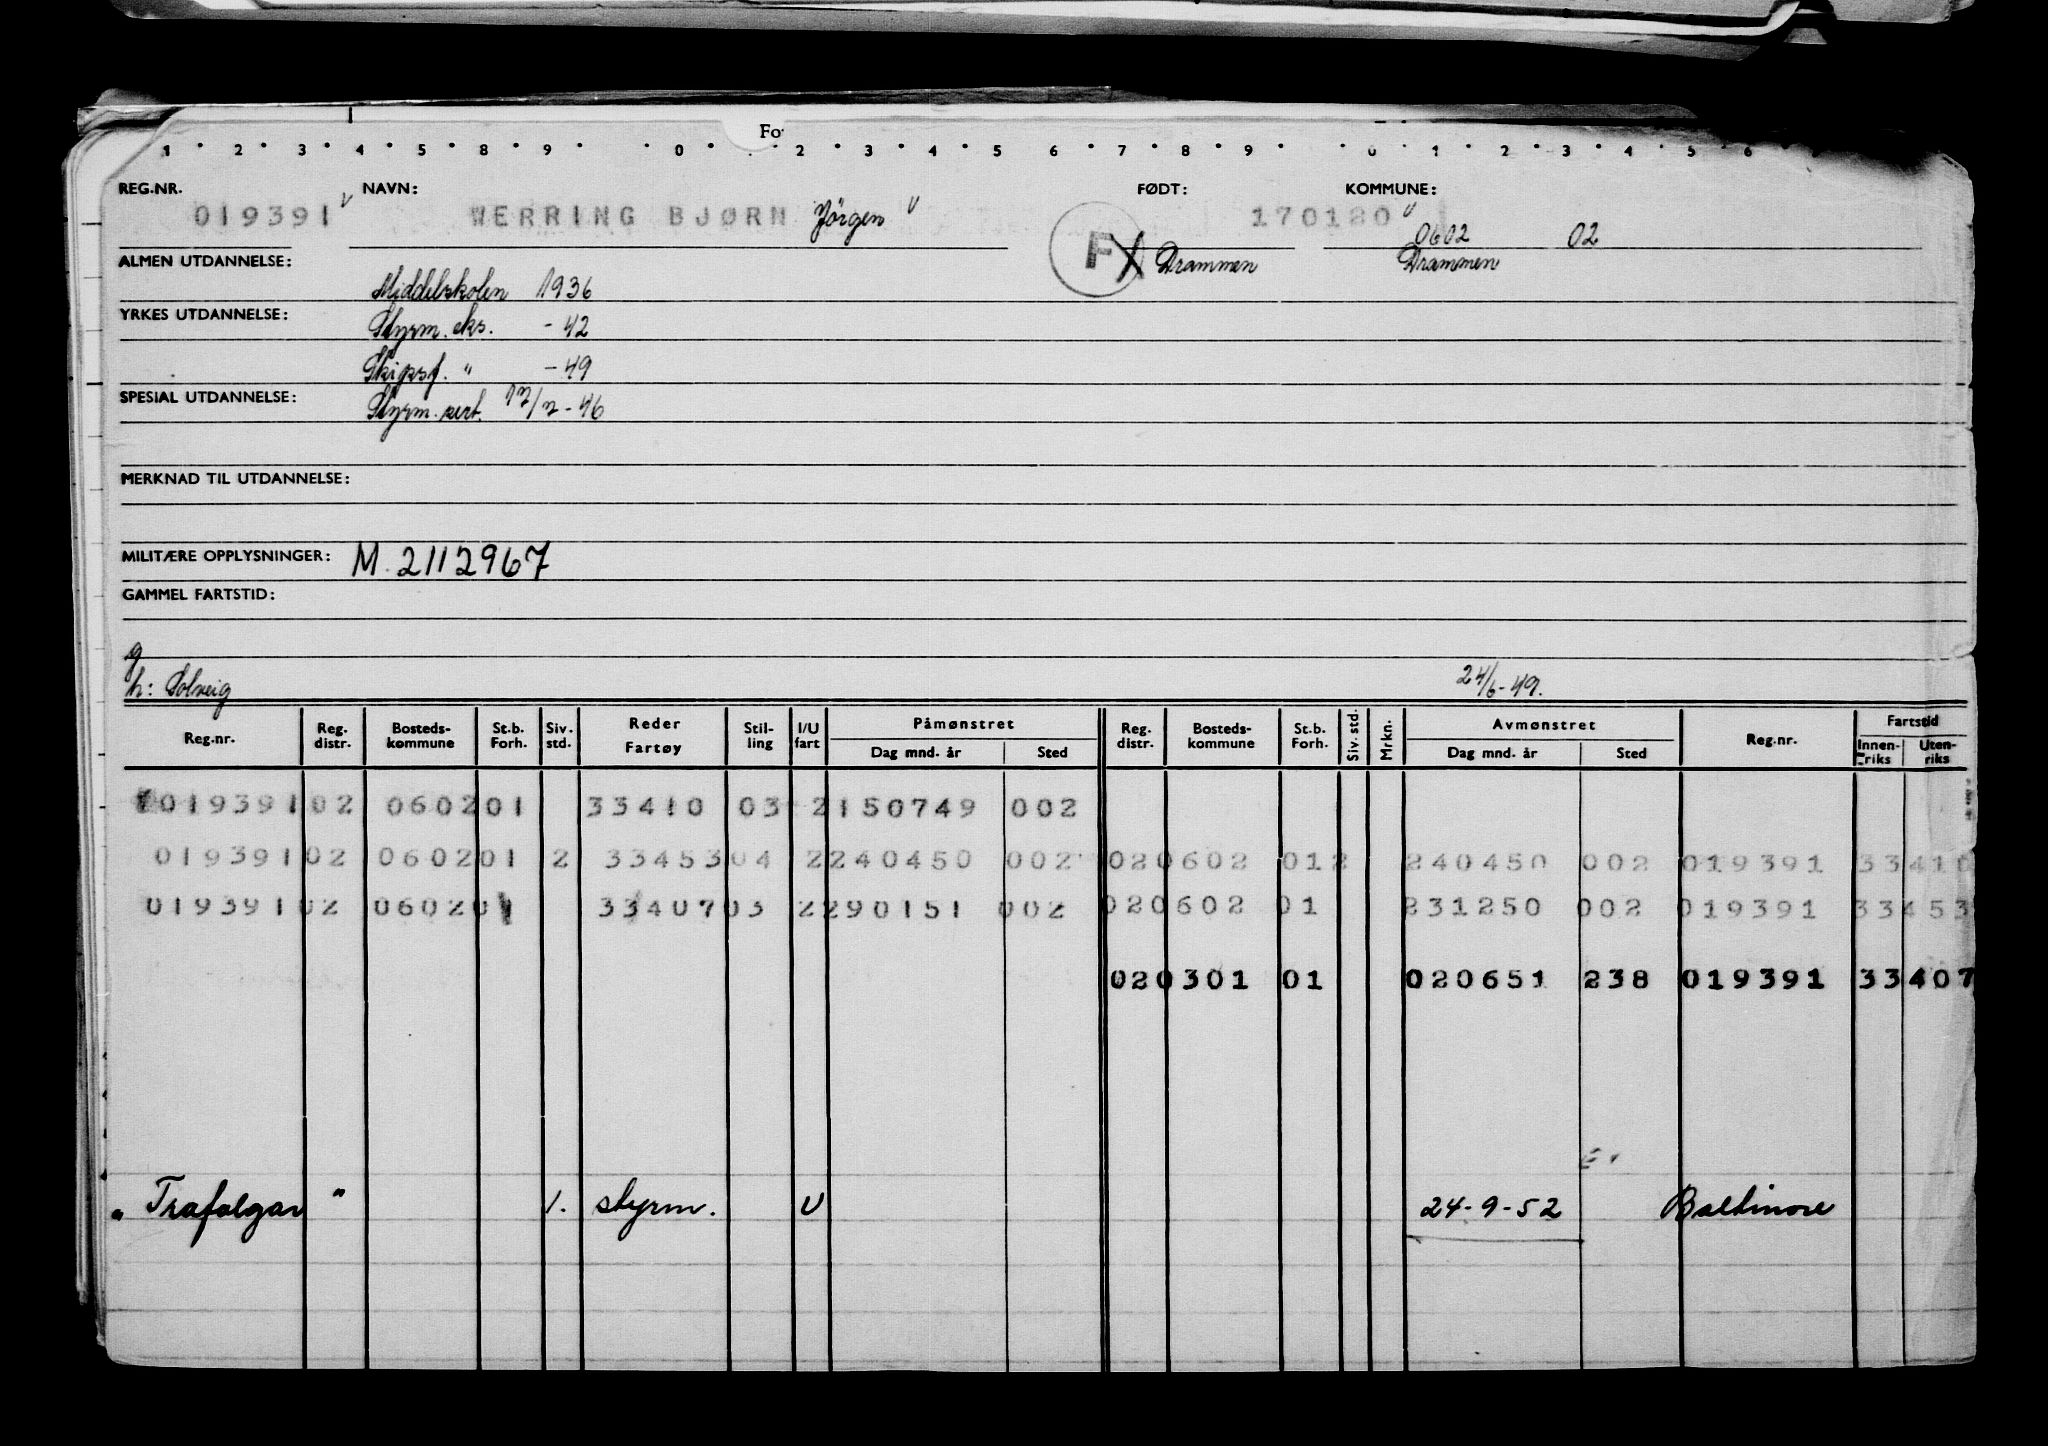 Fo
1 · 2 · 3 · 4 · 5 · 8 · 9 · · 0 · · 2 · 3 · 4 · 5 6 · 7 · 8 · 9 · · 0 · 1 · 2 · 3 · 4 · 5 · 6
REG.NR. NAVN: FØDT: KOMMUNE:
019391 v WERRING BJØRN Jörgen v F 170120 v 0602 02
ALMEN UTDANNELSE: Drammen Drammen
Middelskolen 1936
YRKES UTDANNELSE: Styrm. eks. - 42
Skipsf. " - 49
SPESIAL UTDANNELSE: Styrm. sert. 17/7 - 46
MERKNAD TIL UTDANNELSE:
MILITÆRE OPPLYSNINGER: M. 2112967
GAMMEL FARTSTID:
g
h: Solveig 24/6-49.
Reg.nr. Reg. distr. Bosteds- kommune St.b. Forh. Siv. std. Reder Fartøy Stil- ling I/U fart Påmønstret Dag mnd. år Sted Reg. distr. Bosteds- kommune St.b. Forh. Siv. std. Mrkn. Avmønstret Dag mnd. år Sted Reg.nr. Fartstid Innen- riks Uten- riks
019391 02 0602 01 33410 03 2 150749 002
019391 02 0602 01 2 33453 04 2 240450 002 02 0602 01 2 240450 002 019391 33410
019391 02 0602 01 33407 03 2 290151 002 02 0602 01 231250 002 019391 33453
02 0301 01 020651 238 019391 33407
" Trafalgar " 1. styrm. U 24-9-52 Baltimore